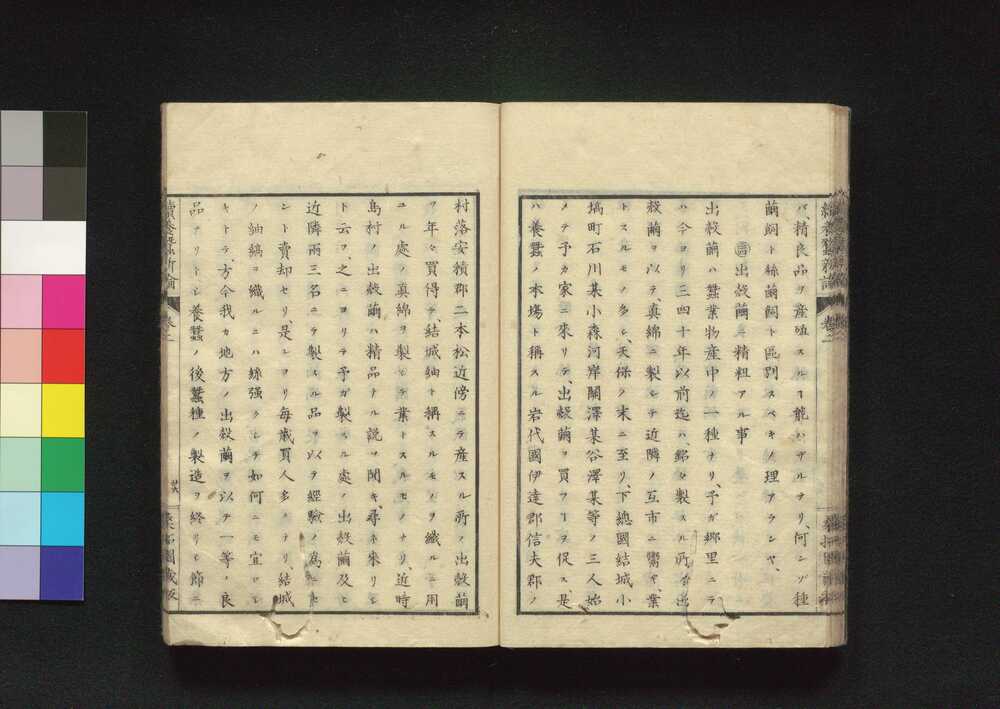 バ、精良品ヲ産殖スルヿ能ハザルナリ、何ンゾ種
繭飼ト絲繭飼ト區別スベキノ理アランヤ、
出殻繭ニ精粗アル事
出殻繭ハ蠶業物産中ノ一種ナリ、予ガ郷里ニテ
ハ今ヨリ三四十年以前迄ハ、銘々製スル所ノ出
殻繭ヲ以テ、真綿ニ製シテ近隣ノ互市ニ鬻キ、業
トスルモノ多シ、天保ノ末ニ至リ、下總國結城小
塙町石川某小森河岸關澤某谷澤某等ノ三人始
メテ予カ家ニ來リテ、出殻繭ヲ買フヿヲ促ス是
ハ養蠶ノ本塲ト稱スル岩代國伊達郡信夫郡ノ
村落安積郡二本松近傍ニテ産スル所ノ出殻繭
ヲ年々買得テ、結城紬ト稱スルモノヲ織ルニ用
ユル處ノ真綿ヲ製シテ業トスルモノナリ、近時
島村ノ出殻繭ハ精品ナル説ヲ聞キ、尋ネ來リシ
ト云フ、之ニヨリテ予ガ製スル處ノ出殻繭及ヒ
近隣兩三名ニテ製スル品ヲ以テ經驗ノ為ニ
ント賣却セリ、是レヨリ毎歳買人多クナリ、結城
ノ紬縞ヲ織ルニハ絲强クシテ如何ニモ宜ロシ
キトテ、方今我カ地方ノ出殻繭ヲ以テ一等ノ良
品ナリトシ養蠶ノ後蠶種ノ製造ヲ終リシ節ニ
續養蠶新論
卷二